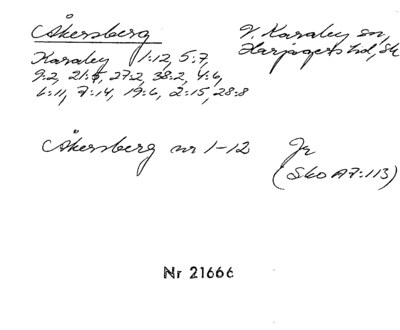 Åkersberg
V. Karaby sn,
Harjagers hd, Sk
Karaby 1:12, 5:7,
9:2, 21:5, 27:2, 38:2, 4:6,
6:11, 7:14, 19:6, 2:15, 28:8
Åkersberg nr 1-12 Jr
(Sko A7:113)
Nr 21666